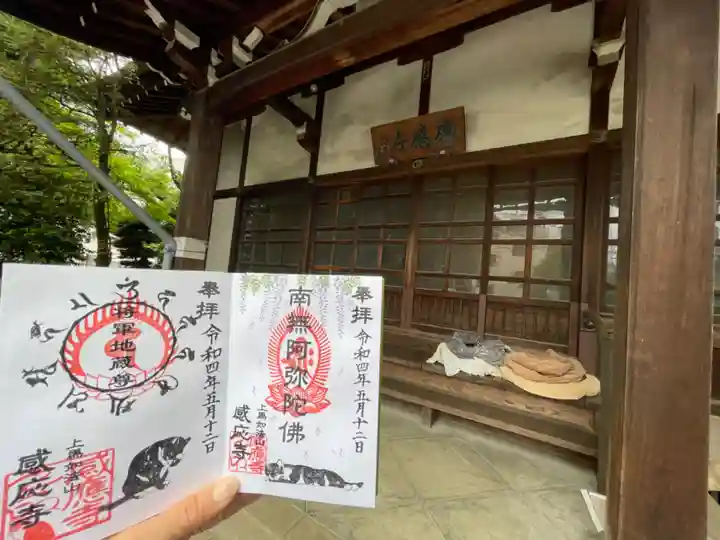 感應寺
奉拝
令和四年五月十二日
南無阿弥陀佛
上馬如法山
感応寺
奉拝
令和四年五月十二日
将軍地蔵尊
上馬如法山
感応寺
感應寺